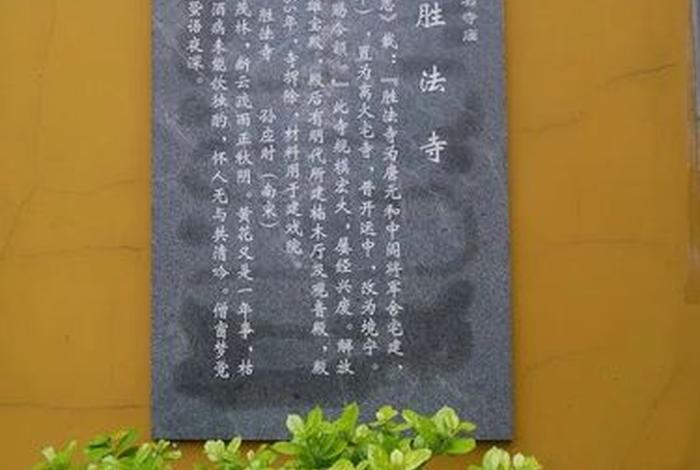 寺庙
胜法寺
》载：『胜法寺为唐元和中阎将军舍宅建，
），置为高大屯寺，晋开运中，改为境宁。
赐今额。』此寺规模宏大，屡经兴废。解放
雄宝殿，殿后有明代所建楠木厅及观音殿，殿
年，寺拆除，材料用于建戏院。
胜法寺 孙应时（南宋）
茂林，断云疏雨正秋阴。黄花又是一年事，枯
酒病未能欣独酌，怀人无与共清吟。僧窗梦觉
蛩语夜深。